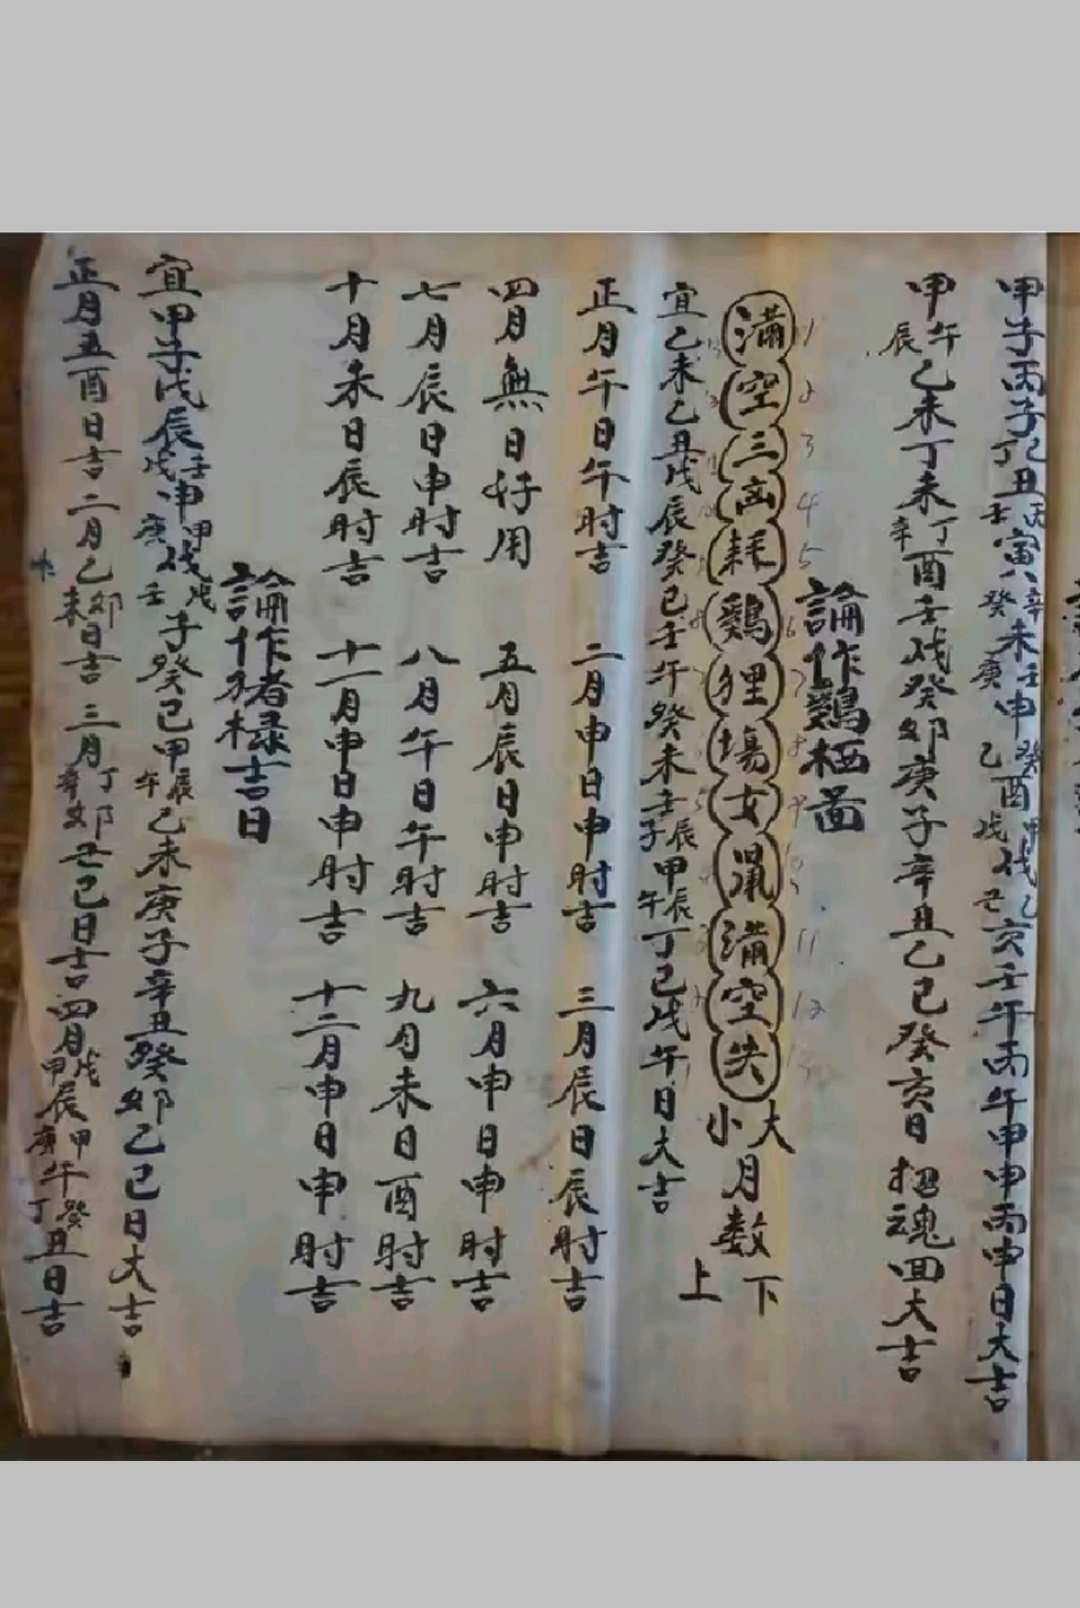 甲子丙子丁己丑壬丙寅癸辛未庚壬申乙癸酉戊甲戌乙亥壬午丙午甲申丙申日大吉
甲辰午乙未丁未辛丁酉壬戌癸卯庚子辛丑乙巳癸亥日招魂回大吉
論作鷄栖畨
滿空三凶耗鷄狸塲女鼠滿空失小大月数上下
1 2 3 4 5 6 7 8 9 10 11 12 13
宜乙未乙丑戊辰癸巳壬午癸未壬子辰甲午辰丁巳戊午日大吉
正月午日午时吉 二月申日申时吉 三月辰日辰时吉
四月無日好用 五月辰日申时吉 六月申日申时吉
七月辰日申时吉 八月午日午时吉 九月未日酉时吉
十月未日辰时吉 十一月申日申时吉 十二月申日申时吉
論作猪椂吉日
宜甲子戊辰戊壬申庚甲戌壬戊子癸巳甲午辰乙未庚子辛丑癸卯乙巳日大吉
正月五酉日吉 二月乙未卯日吉 三月辛丁卯巳日吉 四月甲戊辰庚甲午丁癸丑日吉